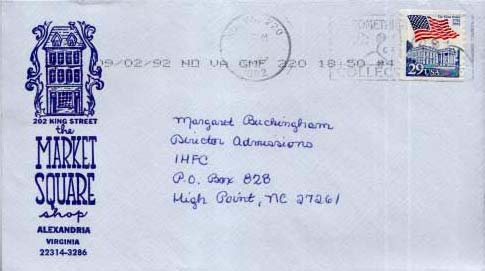 202 KING STREET
the
MARKET
SQUARE
shop
ALEXANDRIA
VIRGINIA
22314-3286
220
1992
09/02/92 NO VA GMF 220 18:50 #4
SOMETHING
COLLEC
29 USA
Margaret Buckingham
Director Admissions
IHFC
P.O. Box 828
High Point, NC 27261